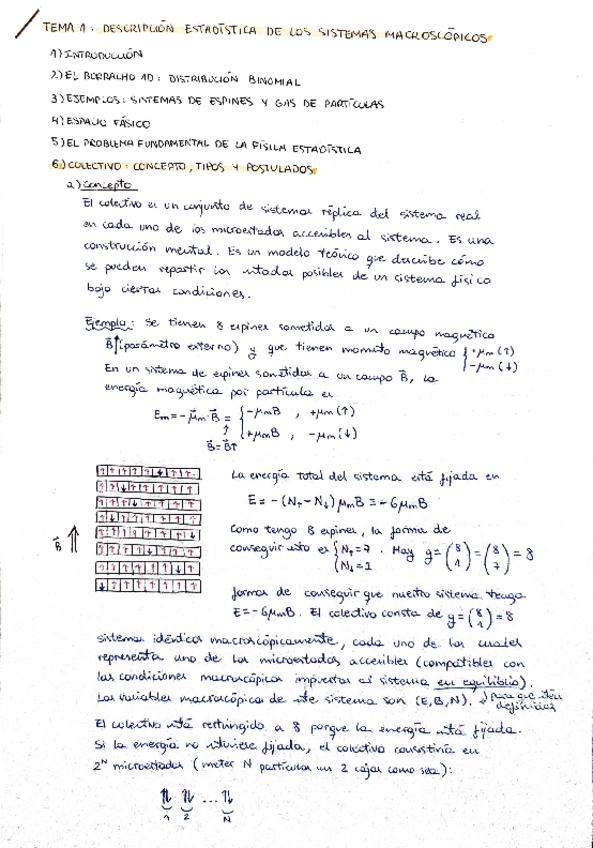 TEMA 1: DESCRIPCIÓN ESTADÍSTICA DE LOS SISTEMAS MACROSCÓPICOS
1) INTRODUCCIÓN
2) EL BORRACHO 1D: DISTRIBUCIÓN BINOMIAL
3) EJEMPLOS: SISTEMAS DE ESPINES Y GAS DE PARTÍCULAS
4) ESPACIO FÁSICO
5) EL PROBLEMA FUNDAMENTAL DE LA FÍSICA ESTADÍSTICA
6) COLECTIVO: CONCEPTO, TIPOS Y POSTULADOS
a) Concepto
El colectivo es un conjunto de sistemas réplica del sistema real
en cada uno de los microestados accesibles al sistema. Es una
construcción mental. Es un modelo teórico que describe cómo
se pueden repartir los estados posibles de un sistema físico
bajo ciertas condiciones.
Ejemplo: Se tienen 8 espines sometidos a un campo magnético
B⃗↑ (parámetro externo) y que tienen momento magnético { +μm (↑)
−μm (↓)
En un sistema de espines sometidos a un campo B⃗, la
energía magnética por partícula es
Em = −μ⃗m·B⃗ = { −μmB , +μm (↑)
+μmB , −μm (↓)
↑
B⃗ = B⃗↑
La energía total del sistema está fijada en
E = −(N↑ − N↓) μmB ≡ −6μmB
Como tengo 8 espines, la forma de
conseguir esto es { N↑ = 7 . Hay g = (8 1) = (8 7) = 8
N↓ = 1
B⃗ ↑
formas de conseguir que nuestro sistema tenga
E = −6μmB. El colectivo consta de g = (8 1) = 8
sistemas idénticos macroscópicamente, cada uno de los cuales
representa uno de los microestados accesibles (compatibles con
las condiciones macroscópicas impuestas al sistema en equilibrio).
Las variables macroscópicas de este sistema son (E, B, N). para que estén
definidas
El colectivo está restringido a 8 porque la energía está fijada.
Si la energía no estuviese fijada, el colectivo consistiría en
2^N microestados (meter N partículas en 2 cajas como sea):
↑↓ ↑↓ ... ↑↓
1 2 N